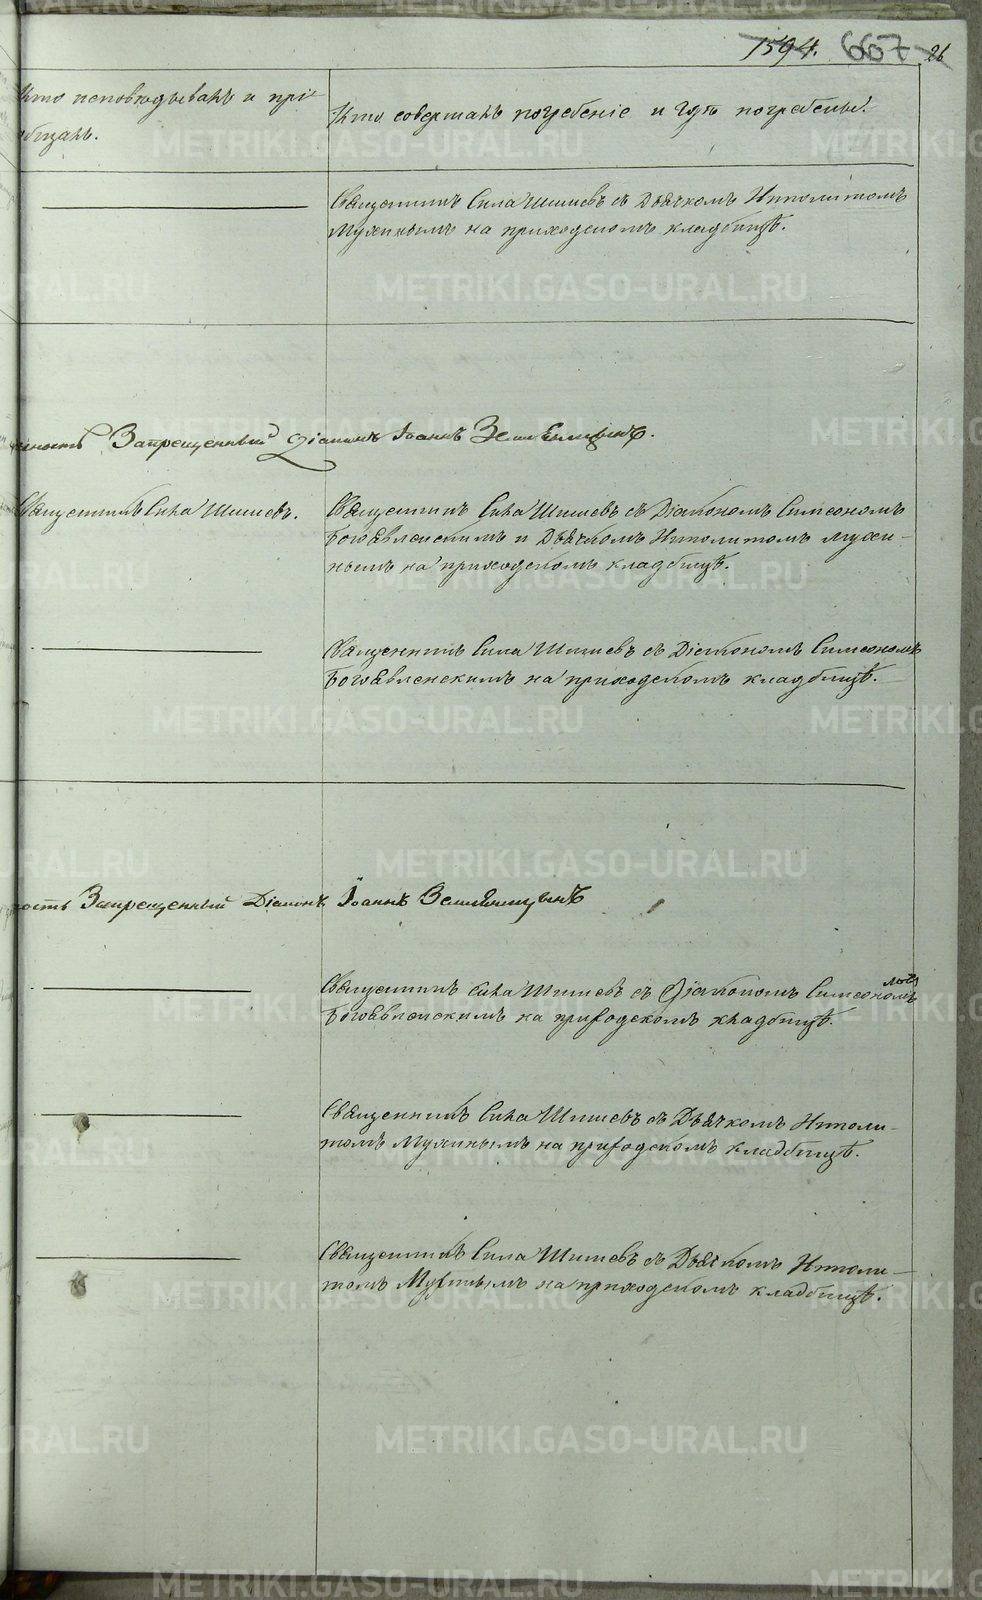 1594. 667 26
Кто исповѣдывалъ и прі-
общалъ.
Кто совершалъ погребеніе и гдѣ погребены.
Священникъ Сила Шишевъ съ Дьячкомъ Ипполитомъ
Мухинымъ на приходскомъ кладбищѣ.
Запрещенный діаконъ Іоаннъ Земляницынъ.
Священникъ Сила Шишевъ.
Священникъ Сила Шишевъ съ Діакономъ Симеономъ
Богоявленскимъ и Дьячкомъ Ипполитомъ Мухи-
нымъ на приходскомъ кладбищѣ.
Священникъ Сила Шишевъ съ Діакономъ Симеономъ
Богоявленскимъ на приходскомъ кладбищѣ.
ность Запрещенный Діаконъ Іоаннъ Земляницынъ
Священникъ Сила Шишевъ съ Діакономъ Симеономъ
Богоявленскимъ на приходскомъ кладбищѣ.
Священникъ Сила Шишевъ съ Дьячкомъ Ипполи-
томъ Мухинымъ на приходскомъ кладбищѣ.
Священникъ Сила Шишевъ съ Дьячкомъ Ипполи-
томъ Мухинымъ на приходскомъ кладбищѣ.
METRIKI.GASO-URAL.RU